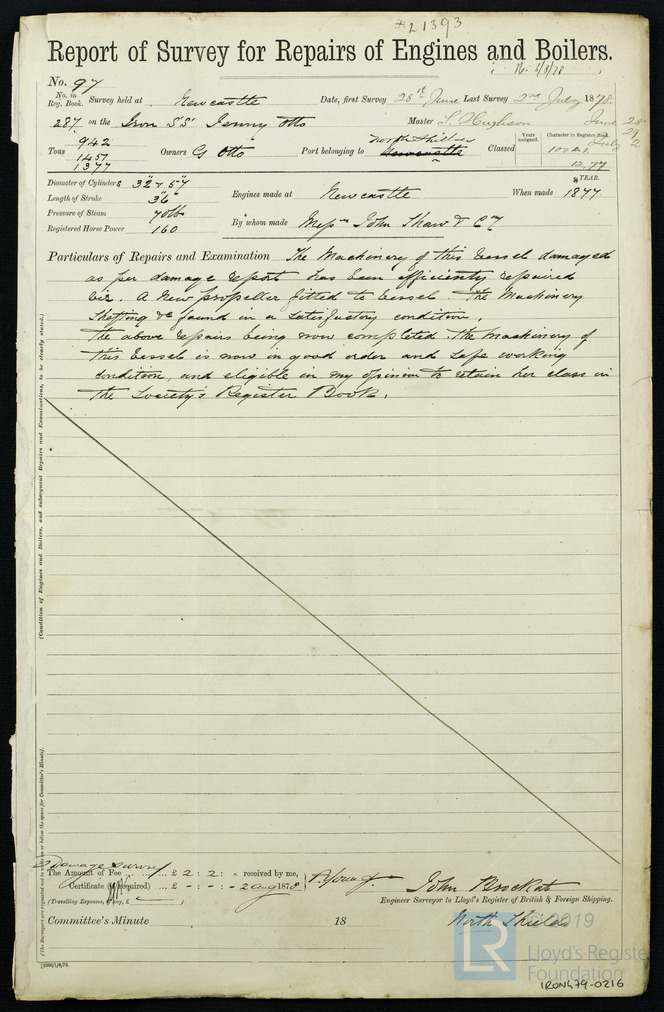 21393
Report of Survey for Repairs of Engines and Boilers.
No. 97
No. in Reg. Book. Survey held at Newcastle Date, first Survey 28th June Last Survey 2nd July 1878.
287 on the Iron S.S. Jenny Otto Master Hughson June 28
29
July 2
Tons 942
1457
1377
Owners G Otto Port belonging to North Shields Newcastle Classed Years assigned. Character in Register Book. 100A1
12.77
YEAR.
Diameter of Cylinders 32" + 57" Engines made at Newcastle When made 1877
Length of Stroke 36"
Pressure of Steam 70lbs By whom made Messrs John Shaw & Co
Registered Horse Power 160
Particulars of Repairs and Examination The Machinery of this Vessel damaged
as per damage report has been efficiently repaired
viz. A New propeller fitted to Vessel. The Machinery
Shafting &c found in a Satisfactory condition.
The above repairs being now completed. The Machinery of
this Vessel is now in good order and safe working
condition, and eligible in my opinion to retain her class in
the Society's Register Book.
(Condition of Engines and Boilers, and subsequent Repairs and Examinations, to be clearly stated.)
(The Surveyors are requested not to write on or below the space for Committee's Minute).
Damage Survey
The Amount of Fee £ 2 : 2 : received by me,
Certificate (if required) £ - : - : - 2 Aug 1878
(Travelling Expenses, if any, £
John Brockat
Engineer Surveyor to Lloyd's Register of British & Foreign Shipping.
Committee's Minute 18 North Shields
© 2019
LR
Lloyd's Register
Foundation
IRON479-0216